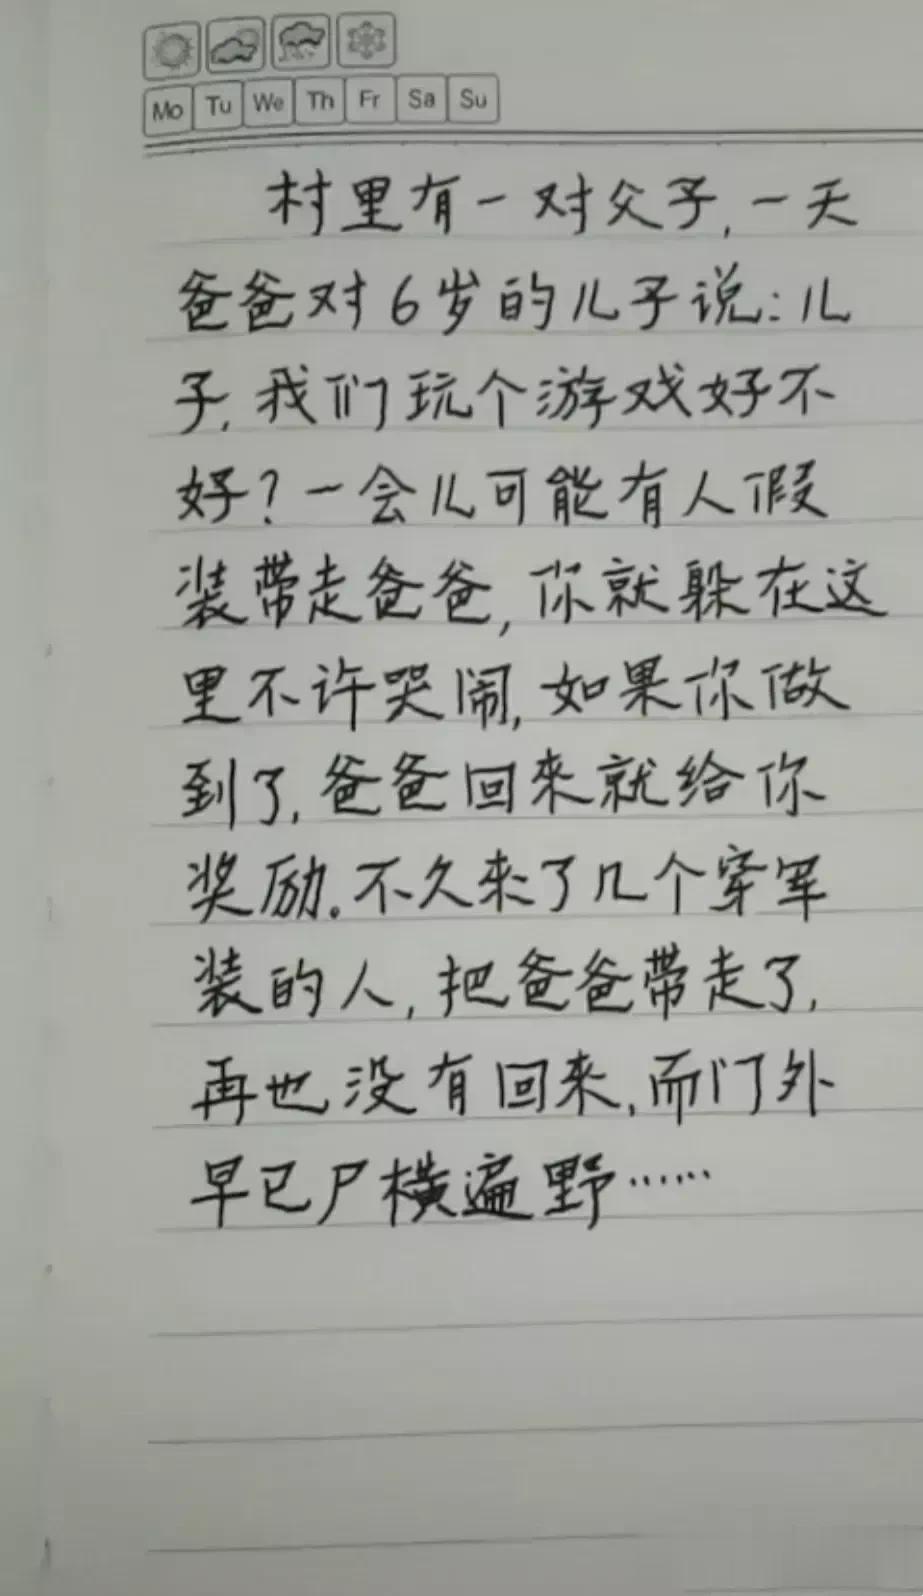 Mo Tu We Th Fr Sa Su
村里有一对父子,一天
爸爸对6岁的儿子说:儿
子,我们玩个游戏好不
好?一会儿可能有人假
装带走爸爸,你就躲在这
里不许哭闹,如果你做
到了,爸爸回来就给你
奖励。不久来了几个穿军
装的人,把爸爸带走了,
再也没有回来,而门外
早已尸横遍野……